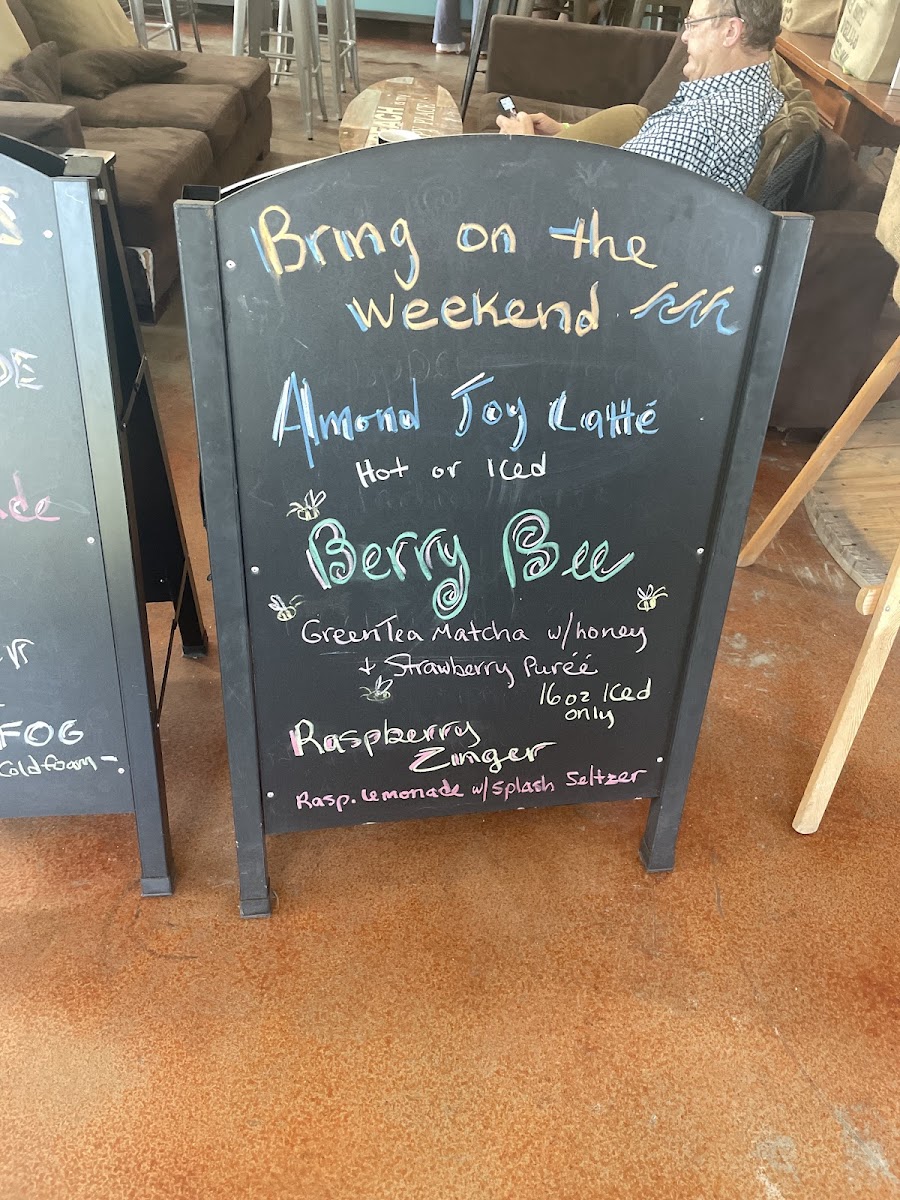 Bring on the
weekend
Almond Joy Latté
Hot or Iced
Berry Bee
GreenTea Matcha w/honey
+ Strawberry Puréé
16oz Iced
only
Raspberry
Zinger
Rasp. Lemonade w/splash Seltzer
DE
de
FOG
Coldfoam